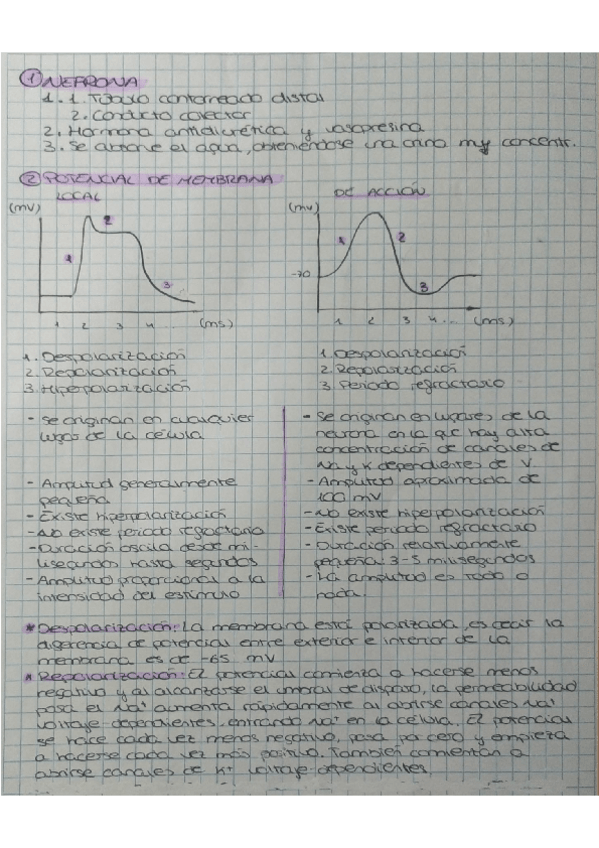 ① NEFRONA
1. 1. Túbulo contorneado distal
2. Conducto colector
2. Hormona antidiurética y vasopresina
3. Se absorbe el agua, obteniéndose una orina muy concentr.
② POTENCIAL DE MEMBRANA
LOCAL
DE ACCIÓN
(mV)
1
2
3
1 2 3 4... (ms)
(mV)
-70
1
2
3
1 2 3 4... (ms)
1. Despolarización
2. Repolarización
3. Hiperpolarización
1. Despolarización
2. Repolarización
3. Periodo refractario
- Se originan en cualquier
lugar de la célula
- Amplitud generalmente
pequeña
- Existe hiperpolarización
- No existe periodo refractario
- Duración oscila desde mi-
lisegundos hasta segundos
- Amplitud proporcional a la
intensidad del estímulo
- Se originan en lugares de la
neurona en la que hay alta
concentración de canales de
Na y K dependientes de V
- Amplitud aproximada de
100 mV
- No existe hiperpolarización
- Existe periodo refractario
- Duración relativamente
pequeña: 3-5 milisegundos
- La amplitud es todo o
nada.
* Despolarización: La membrana está polarizada, es decir la
diferencia de potencial entre exterior e interior de la
membrana es de -65 mV
* Repolarización: El potencial comienza a hacerse menos
negativo y al alcanzarse el umbral de disparo, la permeabilidad
para el Na⁺ aumenta rápidamente al abrirse canales Na⁺
voltaje-dependientes, entrando Na⁺ en la célula. El potencial
se hace cada vez menos negativo, pasa por cero y empieza
a hacerse cada vez más positivo. También comienzan a
abrirse canales de K⁺ voltaje-dependientes.